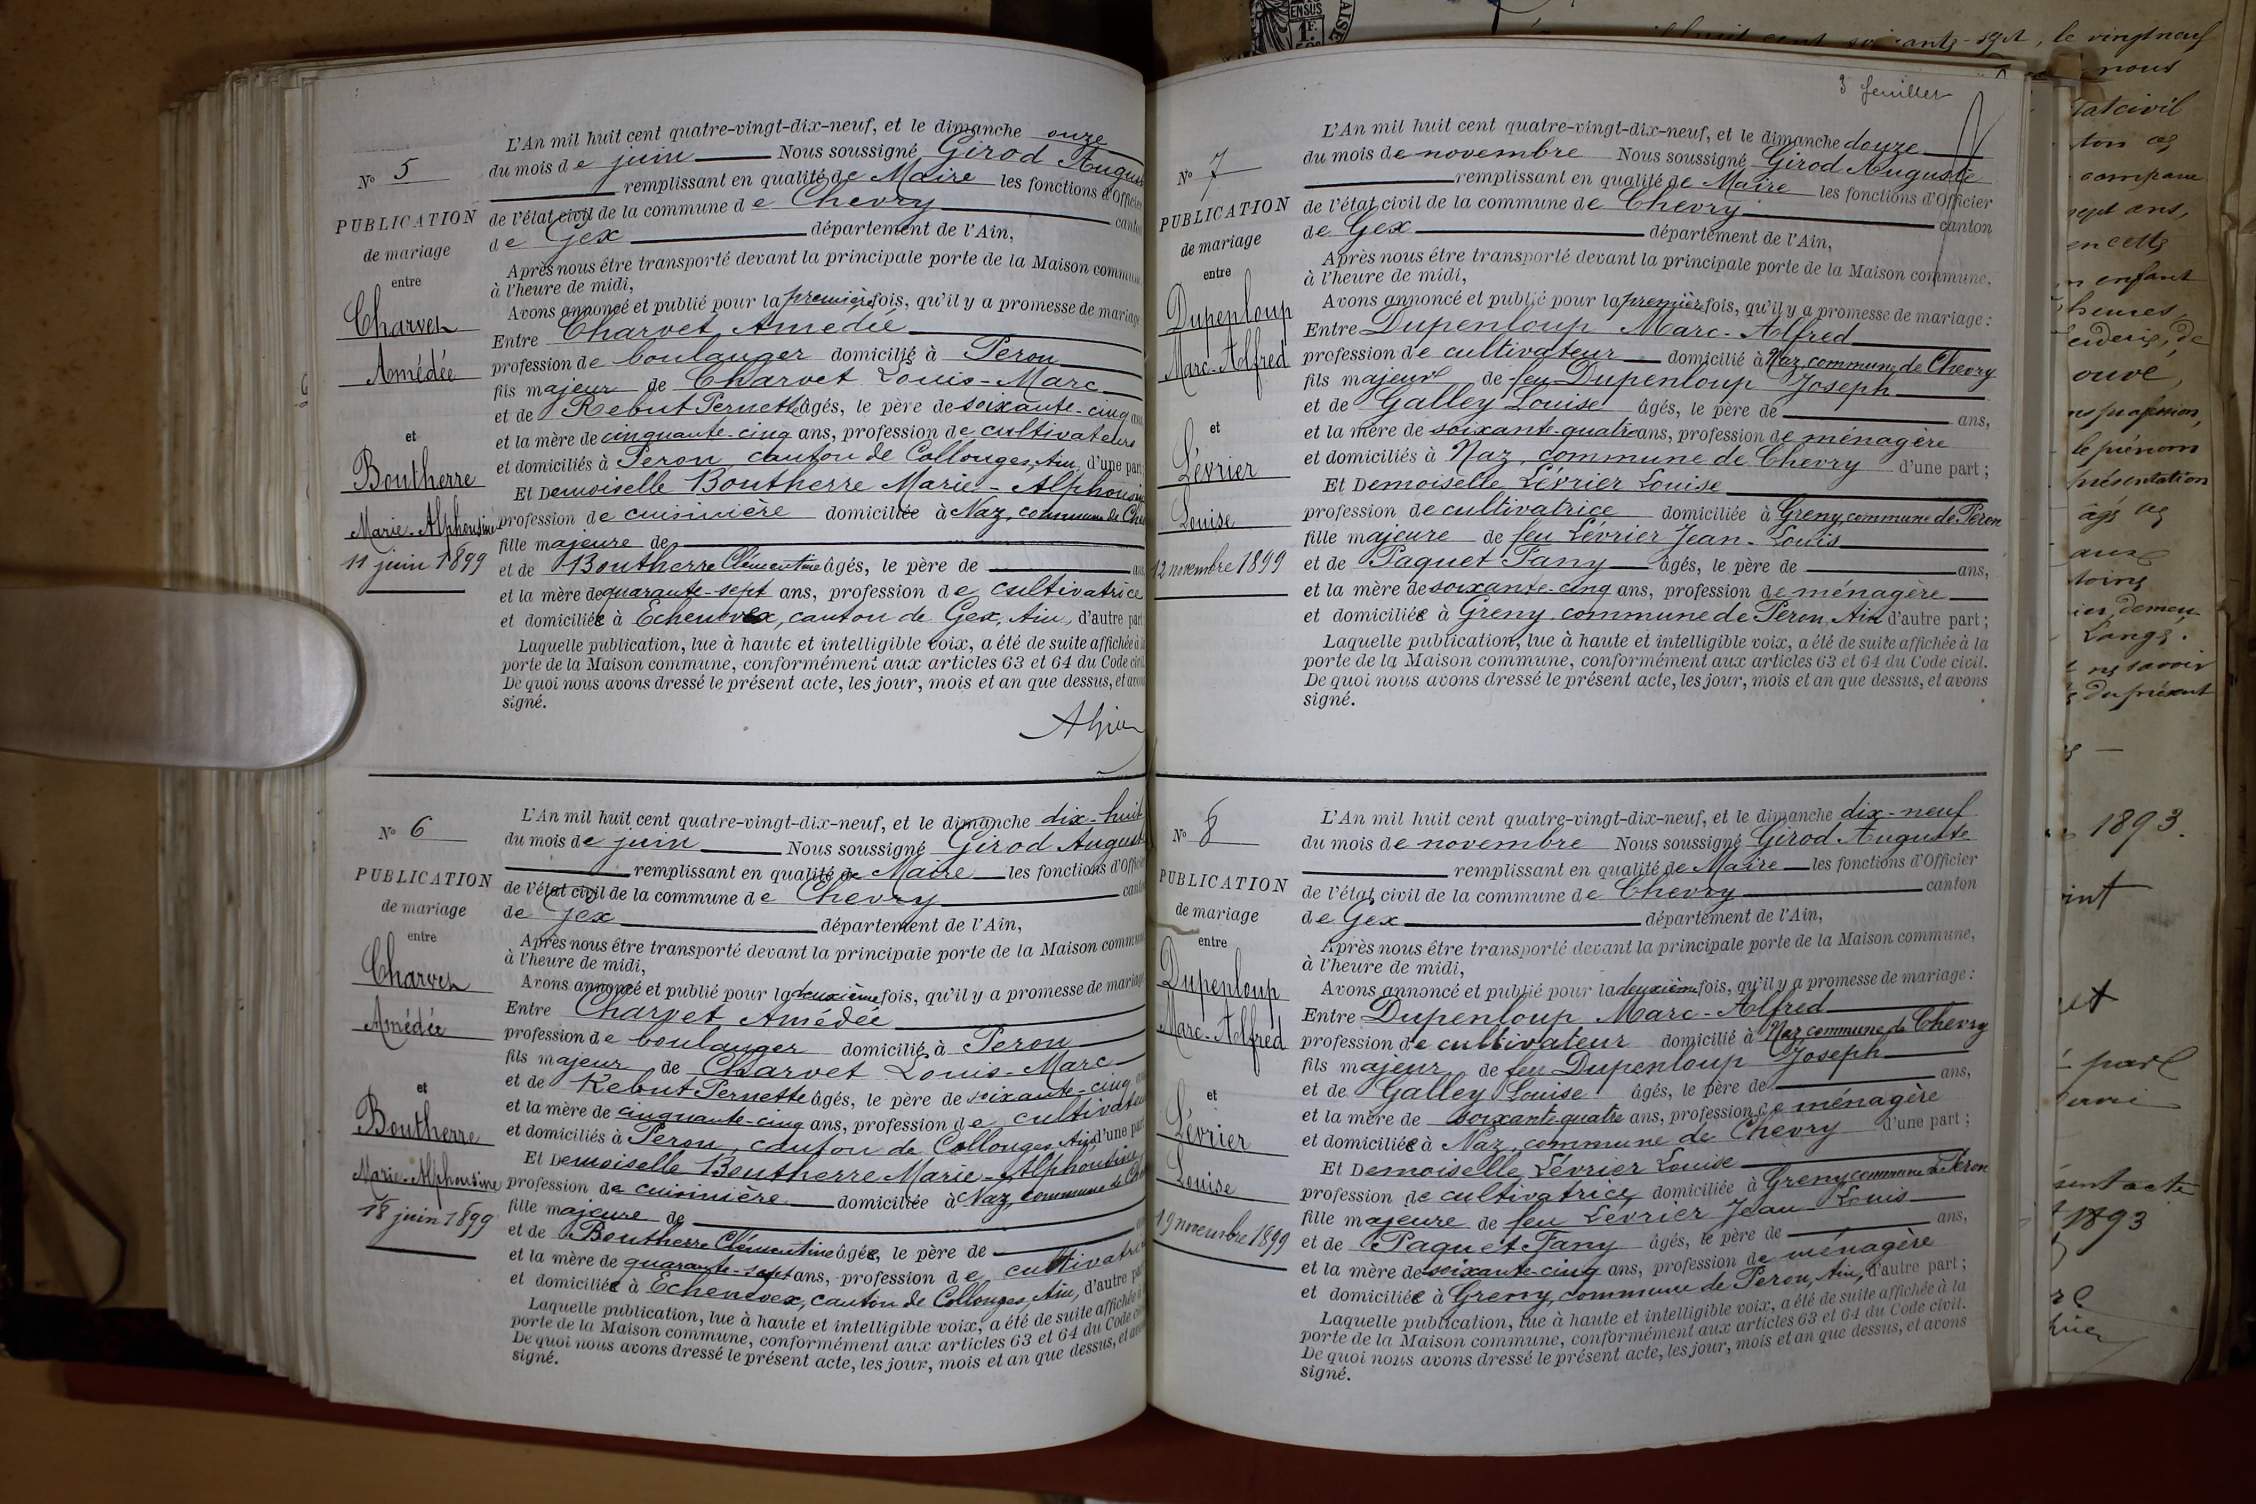 N° 5
PUBLICATION
de mariage
entre
Charvet
Amédée
et
Boutherre
Marie-Alphonsine
11 juin 1899
L'An mil huit cent quatre-vingt-dix-neuf, et le dimanche onze
du mois de juin Nous soussigné Girod Augus
remplissant en qualité de Maire les fonctions d'Officier
de l'état civil de la commune de Chevry canton
de Gex département de l'Ain,
Après nous être transporté devant la principale porte de la Maison commune,
à l'heure de midi,
Avons annoncé et publié pour la première fois, qu'il y a promesse de mariage
Entre Charvet Amédié
profession de boulanger domicilié à Peron
fils majeur de Charvet Louis-Marc
et de Rebut Pernette âgés, le père de soixante-cinq ans
et la mère de cinquante-cinq ans, profession de cultivateurs
et domiciliés à Peron, canton de Collonges, Ain, d'une part;
Et Demoiselle Boutherre Marie-Alphonsine
profession de cuisinière domiciliée à Naz, commune de Che
fille majeure de
et de Boutherre Clémentine âgés, le père de ans
et la mère de quarante-sept ans, profession de cultivatrice
et domiciliée à Echenevex, canton de Gex, Ain, d'autre part
Laquelle publication, lue à haute et intelligible voix, a été de suite affichée à la
porte de la Maison commune, conformément aux articles 63 et 64 du Code civil.
De quoi nous avons dressé le présent acte, les jour, mois et an que dessus, et avons
signé.
N° 6
PUBLICATION
de mariage
entre
Charvet
Amédée
et
Boutherre
Marie-Alphonsine
18 juin 1899
L'An mil huit cent quatre-vingt-dix-neuf, et le dimanche dix-huit
du mois de juin Nous soussigné Girod August
remplissant en qualité de Maire les fonctions d'Officier
de l'état civil de la commune de Chevry canton
de Gex département de l'Ain,
Après nous être transporté devant la principale porte de la Maison commune
à l'heure de midi,
Avons annoncé et publié pour la deuxième fois, qu'il y a promesse de mariage
Entre Charvet Amédée
profession de boulanger domicilié à Peron
fils majeur de Charvet Louis-Marc
et de Rebut Pernette âgés, le père de soixante-cinq
et la mère de cinquante-cinq ans, profession de cultivateu
et domiciliés à Peron, canton de Collonges, Ain, d'une part
Et Demoiselle Boutherre Marie-Alphonsine
profession de cuisinière domiciliée à Naz, commune de Che
fille majeure de
et de Boutherre Clémentine âgée, le père de
et la mère de quarante-sept ans, profession de cultivatri
et domiciliée à Echenevex, canton de Collonges, Ain, d'autre part
Laquelle publication, lue à haute et intelligible voix, a été de suite affichée à
porte de la Maison commune, conformément aux articles 63 et 64 du Code ci
De quoi nous avons dressé le présent acte, les jour, mois et an que dessus, et avo
signé.
3 feuillet
N° 7
PUBLICATION
de mariage
entre
Dupenloup
Marc-Alfred
et
Lévrier
Louise
12 novembre 1899
L'An mil huit cent quatre-vingt-dix-neuf, et le dimanche douze
du mois de novembre Nous soussigné Girod Auguste
remplissant en qualité de Maire les fonctions d'Officier
de l'état civil de la commune de Chevry canton
de Gex département de l'Ain,
Après nous être transporté devant la principale porte de la Maison commune,
à l'heure de midi,
Avons annoncé et publié pour la première fois, qu'il y a promesse de mariage :
Entre Dupenloup Marc-Alfred
profession de cultivateur domicilié à Naz, commune de Chevry
fils majeur de feu Dupenloup Joseph
et de Galley Louise âgés, le père de ans,
et la mère de soixante-quatre ans, profession de ménagère
et domiciliés à Naz, commune de Chevry d'une part ;
Et Demoiselle Lévrier Louise
profession de cultivatrice domiciliée à Greny, commune de Péron
fille majeure de feu Lévrier Jean-Louis
et de Paquet Fany âgés, le père de ans,
et la mère de soixante-cinq ans, profession de ménagère
et domiciliée à Greny, commune de Péron, Ain d'autre part ;
Laquelle publication, lue à haute et intelligible voix, a été de suite affichée à la
porte de la Maison commune, conformément aux articles 63 et 64 du Code civil.
De quoi nous avons dressé le présent acte, les jour, mois et an que dessus, et avons
signé.
N° 8
PUBLICATION
de mariage
entre
Dupenloup
Marc-Alfred
et
Lévrier
Louise
19 novembre 1899
L'An mil huit cent quatre-vingt-dix-neuf, et le dimanche dix-neuf
du mois de novembre Nous soussigné Girod Auguste
remplissant en qualité de Maire les fonctions d'Officier
de l'état civil de la commune de Chevry canton
de Gex département de l'Ain,
Après nous être transporté devant la principale porte de la Maison commune,
à l'heure de midi,
Avons annoncé et publié pour la deuxième fois, qu'il y a promesse de mariage :
Entre Dupenloup Marc-Alfred
profession de cultivateur domicilié à Naz, commune de Chevry
fils majeur de feu Dupenloup Joseph
et de Galley Louise âgés, le père de ans,
et la mère de soixante-quatre ans, profession de ménagère
et domiciliée à Naz, commune de Chevry d'une part ;
Et Demoiselle Lévrier Louise
profession de cultivatrice domiciliée à Greny, commune de Péron
fille majeure de feu Lévrier Jean-Louis
et de Paquet Fany âgés, le père de ans,
et la mère de soixante-cinq ans, profession de ménagère
et domiciliée à Greny, commune de Peron, Ain, d'autre part ;
Laquelle publication, lue à haute et intelligible voix, a été de suite affichée à la
porte de la Maison commune, conformément aux articles 63 et 64 du Code civil.
De quoi nous avons dressé le présent acte, les jour, mois et an que dessus, et avons
signé.
le vingt neuf
nous
enfant
heures,
profession,
le prénom
présentation
savoir
du présent
1893.
1893